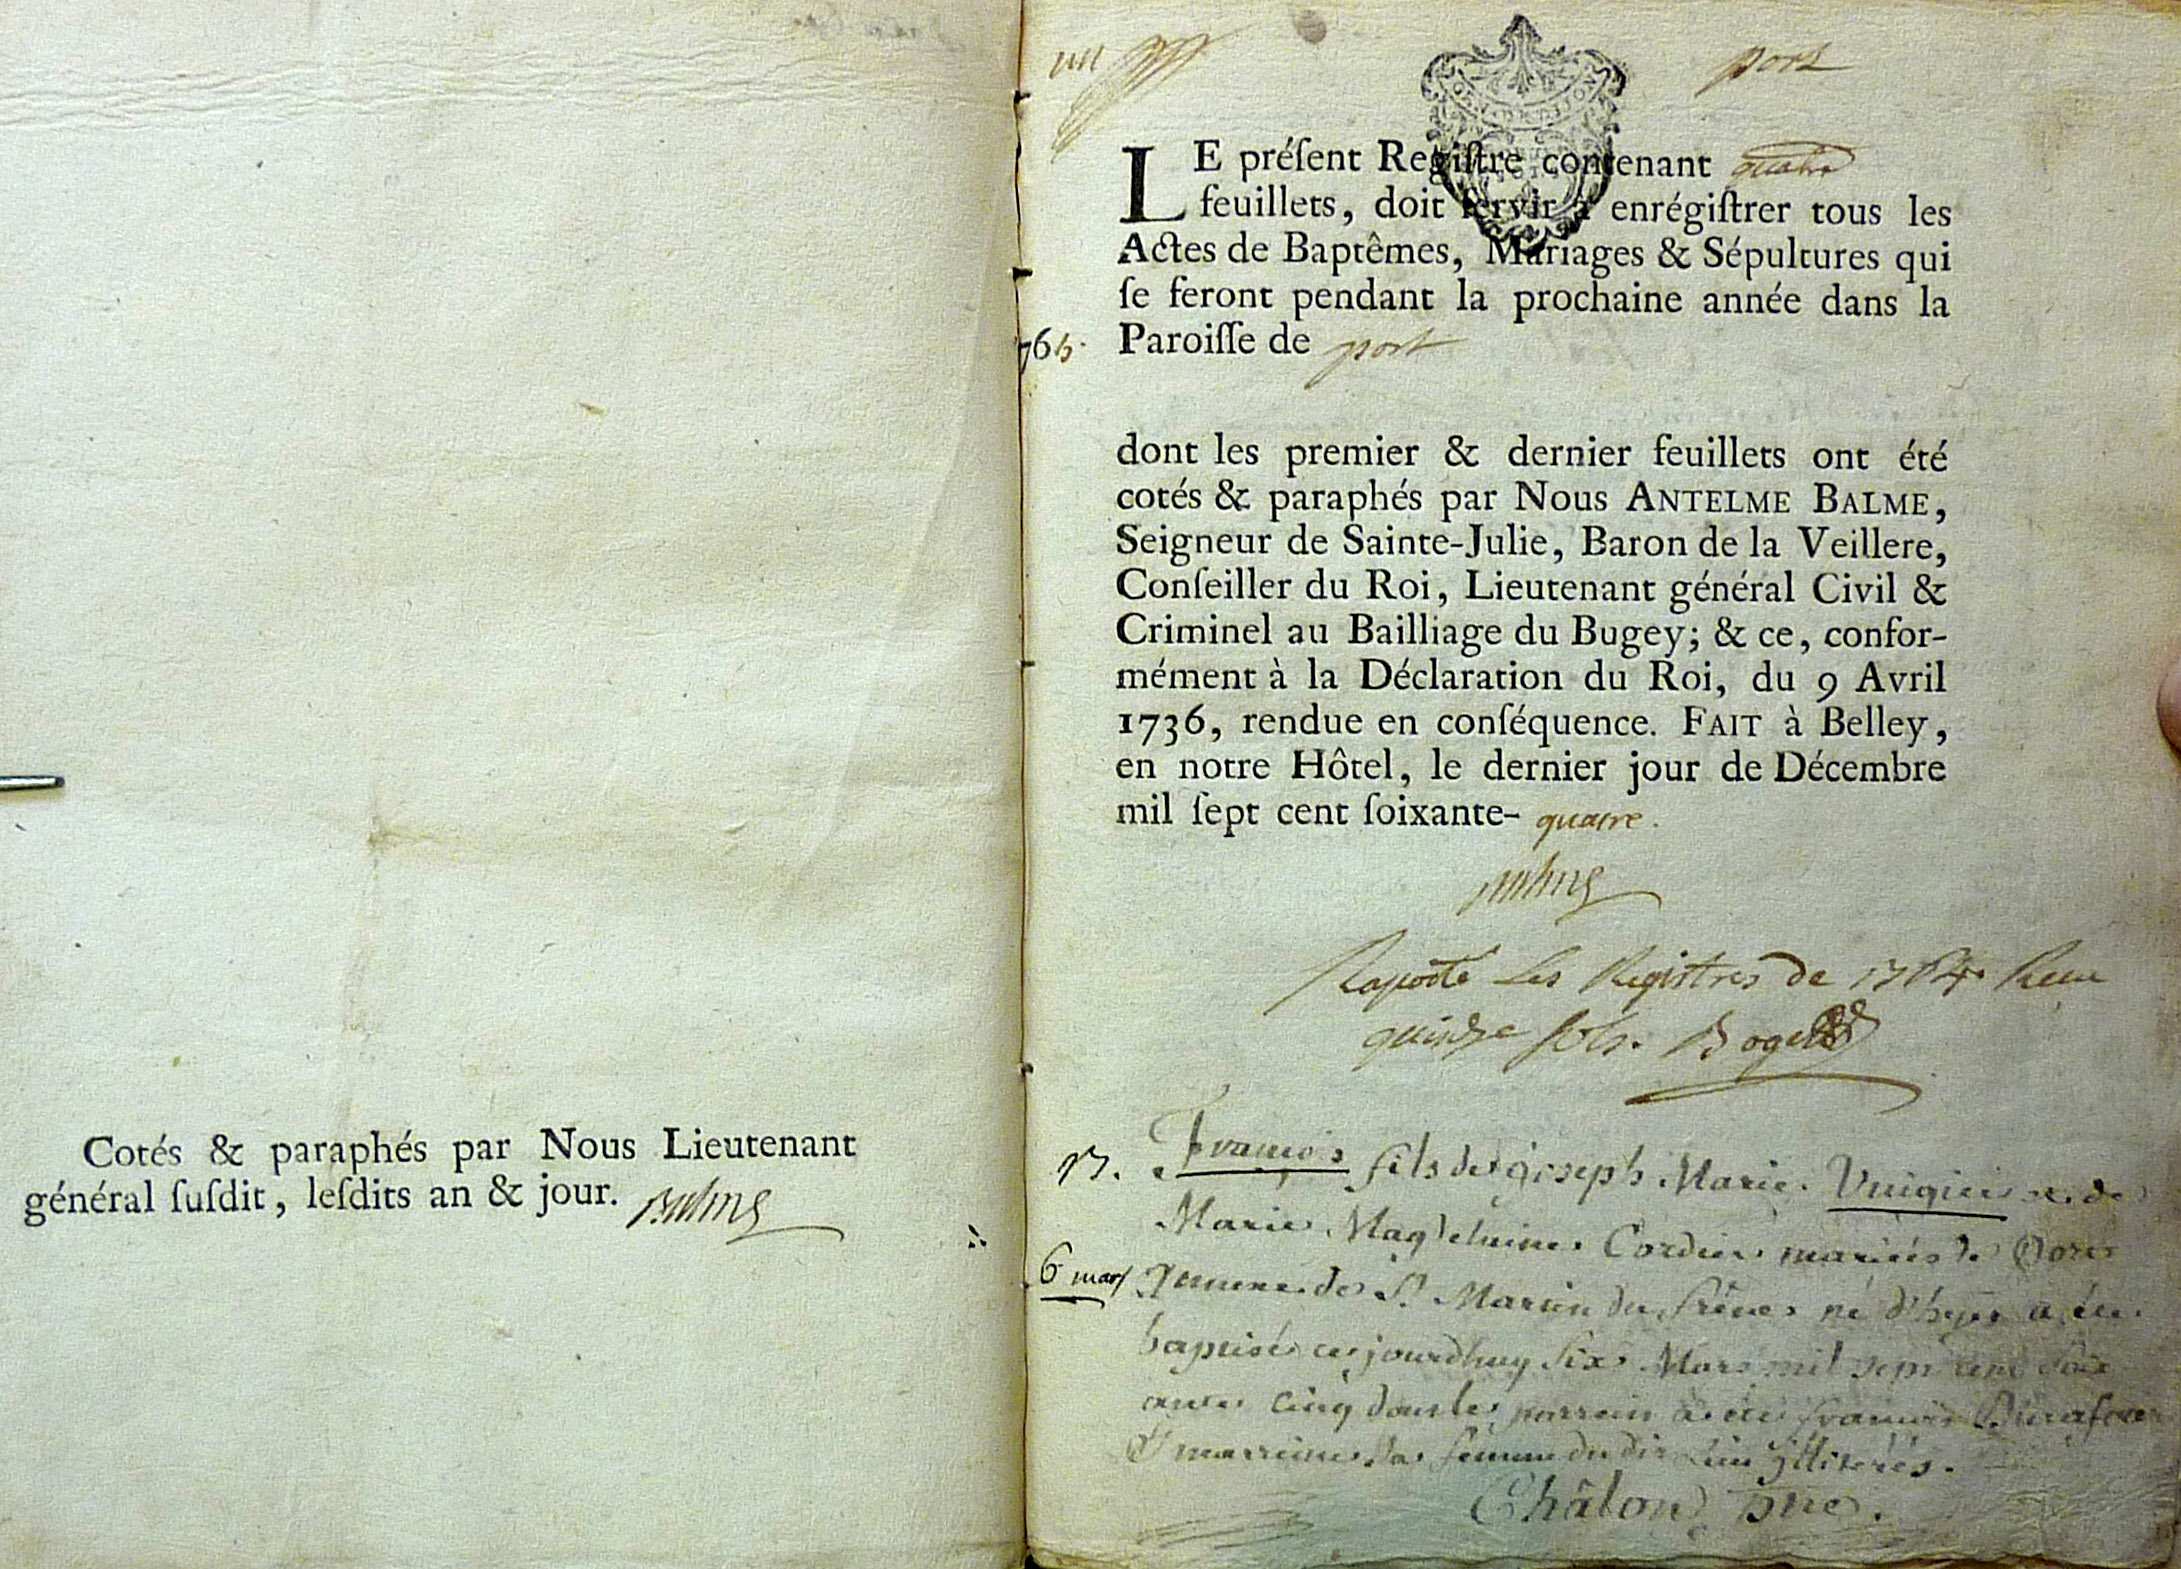 Cotés & paraphés par Nous Lieutenant
général ſuſdit, leſdits an & jour. Balme
un
port
LE préſent Regiſtre contenant quatre
feuillets, doit ſervir à enrégiſtrer tous les
Actes de Baptêmes, Mariages & Sépultures qui
ſe feront pendant la prochaine année dans la
765. Paroiſſe de port
dont les premier & dernier feuillets ont été
cotés & paraphés par Nous ANTELME BALME,
Seigneur de Sainte-Julie, Baron de la Veillere,
Conſeiller du Roi, Lieutenant général Civil &
Criminel au Bailliage du Bugey; & ce, confor-
mément à la Déclaration du Roi, du 9 Avril
1736, rendue en conſéquence. FAIT à Belley,
en notre Hôtel, le dernier jour de Décembre
mil ſept cent ſoixante- quatre.
Balme
Raporté Les Registres de 1764 Receu
quinze sols.
françois fils de joseph Marie et de
Marie Magdeleine Cordier mariés de
6 mars de St Martin du frêne né d'hyer a été
baptisé ce jourdhuy six Mars mil sept cent soix
ante cinq dont le parrein a été françois
& marreine la femme du dit illiterés.
Châlon